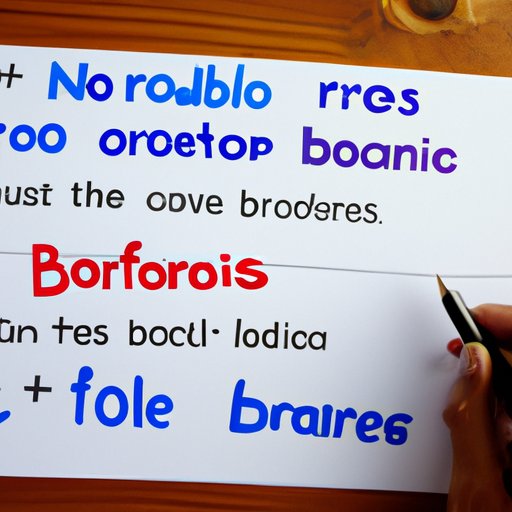 + Norodblo rres
roo orcetop boanic
nust the oove brooderes.
Borforois
un tes boctl· lodica
+ fole braares